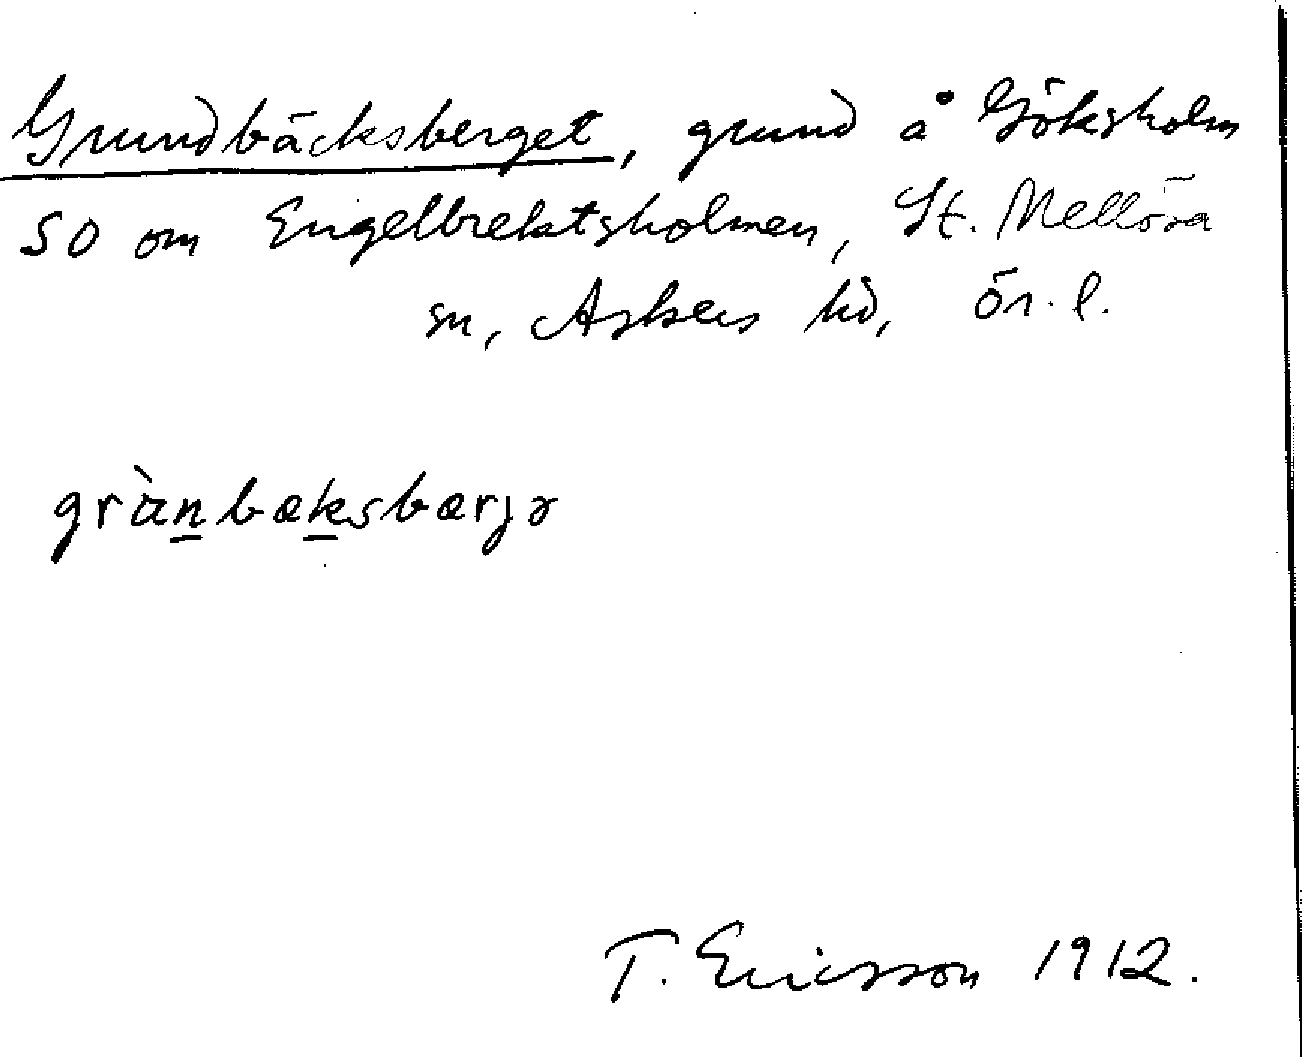 Grundbäcksberget, grund å Göksholm
SO om Engelbrektsholmen, St. Mellösa
sn, Askers hd, ör. l.
grànbæksbærjə
T. Ericsson 1912.